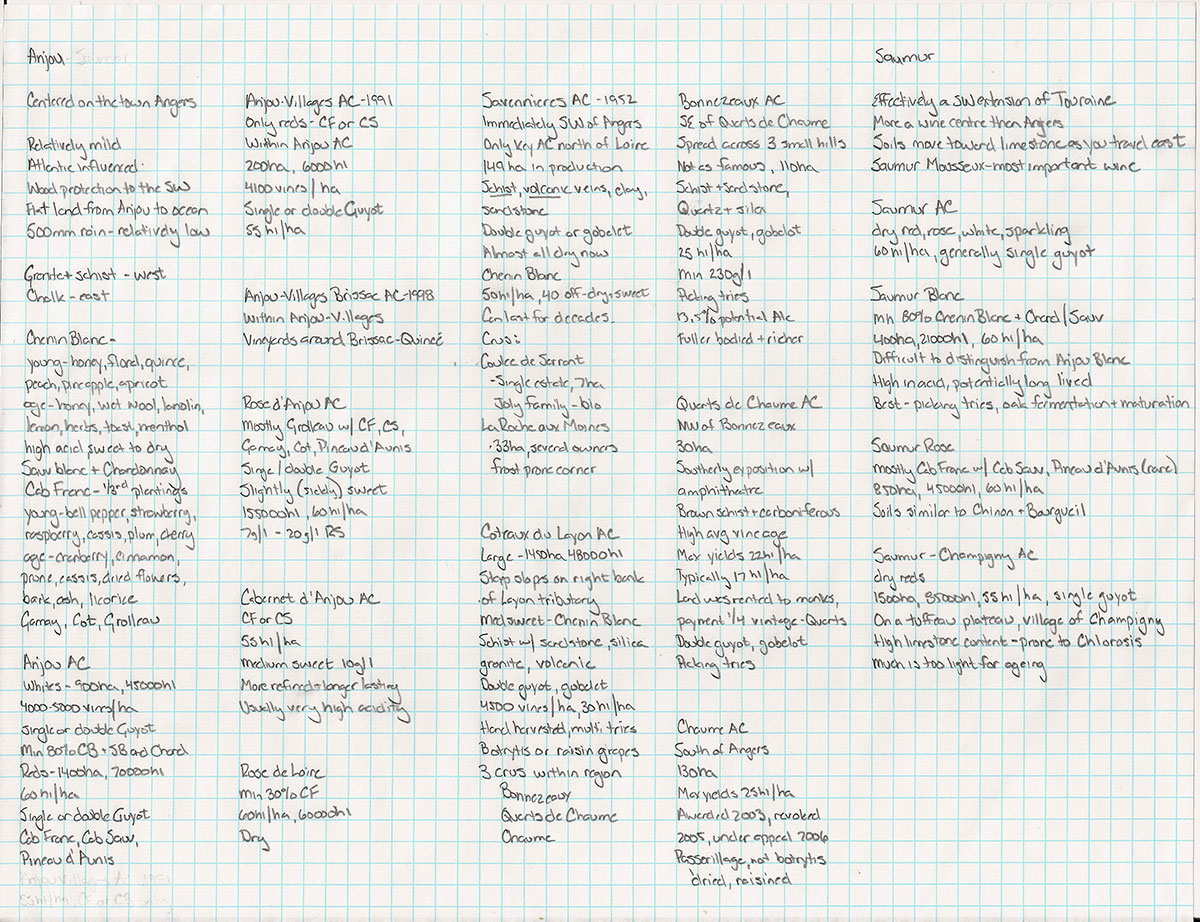 Anjou
Centered on the town Angers
Relatively mild
Atlantic influenced.
Wood protection to the SW
Flat land from Anjou to ocean
500mm rain - relatively low
Granite + schist - west
Chalk - east
Chenin Blanc -
young - honey, floral, quince,
peach, pineapple, apricot
age - honey, wet wool, lanolin,
lemon, herbs, toast, menthol
high acid sweet to dry
Sauv blanc + Chardonnay
Cab Franc - 1/3rd plantings
young - bell pepper, strawberry,
raspberry, cassis, plum, cherry
age - cranberry, cinnamon,
prune, cassis, dried flowers,
bark, ash, licorice
Gamay, Cot, Grolleau
Anjou AC
Whites - 900ha, 45000hl
4000-5000 vines/ha
single or double Guyot
Min 80% CB + SB and Chard
Reds - 1400ha, 70000hl
60hl/ha
Single or double Guyot
Cab Franc, Cab Sauv,
Pineau d'Aunis
Anjou-Villages AC - 1991
Only reds - CF or CS
Within Anjou AC
200ha, 6000hl
4100 vines/ha
Single or double Guyot
55 hl/ha
Anjou-Villages Brissac AC - 1998
Within Anjou-Villages
Vineyards around Brissac-Quincé
Rose d'Anjou AC
mostly Grolleau w/ CF, CS,
Gamay, Cot, Pineau d'Aunis
Singe/double Guyot
Slightly (sickly) sweet
155000hl, 60hl/ha
7g/l - 20g/l RS
Cabernet d'Anjou AC
CF or CS
55hl/ha
medium sweet 10g/l
More refined + longer lasting
Usually very high acidity
Rose de Loire
min 30% CF
60hl/ha, 60000hl
Dry
Savennieres AC - 1952
Immediately SW of Angers
Only key AC north of Loire
149 ha in production
Schist, volcanic veins, clay,
sandstone
Double guyot or gobelet
Almost all dry now
Chenin Blanc
50hl/ha, 40 off-dry + sweet
Can last for decades
Crus:
Coulee de Serrant
- Single estate, 7ha
Joly family - bio
La Roche aux Moines
.33ha, several owners
frost prone corner
Coteaux du Layon AC
Large - 1450ha 48000hl
Steep slops on right bank
of Layon tributary
Med sweet - Chenin Blanc
Schist w/ sandstone, silica
granite, volcanic
Double guyot, gobelet
4500 vines/ha, 30hl/ha
Hand harvested, multi tries
Botrytis or raisin grapes
3 crus within region
Bonnezeaux
Quarts de Chaume
Chaume
Bonnezeaux AC
SE of Quarts de Chaume
Spread across 3 small hills
Not as famous, 110ha
Schist + sandstone,
Quartz + sila
Double guyot, gobelot
25 hl/ha
min 230g/l
Picking tries
13.5% potential Alc
Fuller bodied + richer
Quarts de Chaume AC
NW of Bonnezeaux
30ha
Southerly exposition w/
amphitheatre
Brown schist + carboniferous
High avg vine age
Max yields 22hl/ha
Typically 17 hl/ha
Land was rented to monks,
payment 1/4 vintage - Quarts
Double guyot, gobelot
Picking tries
Chaume AC
South of Angers
130ha
Max yields 25hl/ha
Awarded 2003, revoked
2005, under appeal 2006
Passerillage, not botrytis
dried, raisined
Saumur
Effectively a SW extension of Touraine
More a wine centre then Angers
Soils move toward limestone as you travel east
Saumur Mousseux - most important wine
Saumur AC
dry red, rose, white, sparkling
60hl/ha, generally single guyot
Saumur Blanc
min 80% Chenin Blanc + Chard / Sauv
400ha, 21000hl, 60hl/ha
Difficult to distinguish from Anjou Blanc
High in acid, potentially long lived
Best - picking tries, oak fermentation + maturation
Saumur Rose
mostly Cab Franc w/ Cab Sauv, Pineau d'Aunis (rare)
850ha, 45000hl, 60hl/ha
Soils similar to Chinon + Bourgueil
Saumur - Champigny AC
dry reds
1500ha, 85000hl, 55hl/ha, single guyot
On a tuffeau plateau, village of Champigny
High limestone content - prone to Chlorosis
much is too light for ageing